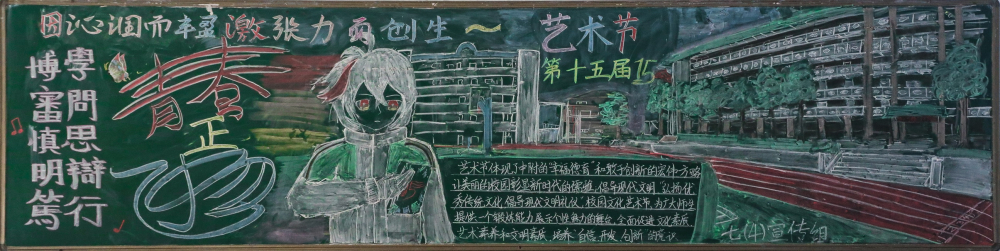 因沁润而丰盈 激张力而创生～
艺术节
第十五届
博學
審問
慎思
明辯
篤行
青春
正
艺术节体现了中附的"幸福德育"和联合创新的文件方略
让美丽的校园彰显新时代的 倡导现代文明,弘扬优
秀传统文化,倡导现代文明礼仪,校园文化艺术节,为广大师生
提供一个锻炼能力展示个性魅力的舞台,全面促进文化素质
艺术素养和文明素质,培养自信、开发、创新的意识
七(4)宣传组